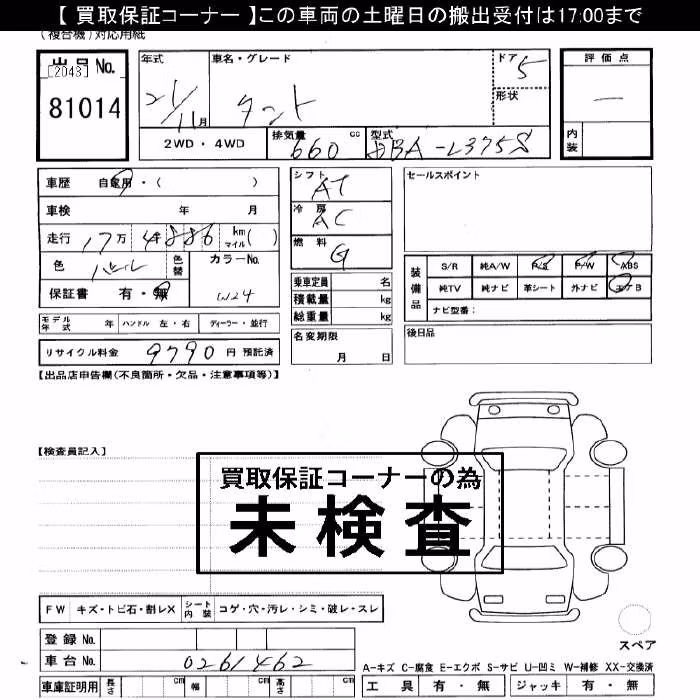 【 買取保証コーナー 】この車両の土曜日の搬出受付は17:00まで
(複合機)対応用紙
出品 No.
[2043]
81014
年式
21/11月
車名・グレード
タント
ドア 5
形状
評価点
―
内装
2WD・4WD
排気量 660 cc
型式 DBA-L375S
車歴 自家用・( )
車検 年 月
走行 17万 4886 km マイル( )
色 パール 色替
カラーNo. W24
保証書 有・無
シフト AT
冷房 AC
燃料 G
乗車定員 名
積載量 kg
総重量 kg
セールスポイント
装備品
S/R 純A/W P/S P/W ABS
純TV 純ナビ 革シート 外ナビ エアB
ナビ型番:
モデル年式 年 ハンドル 左・右 ディーラー・並行
名変期限
月 日
後日品
リサイクル料金 9790 円 預託済
【出品店申告欄(不良箇所・欠品・注意事項等)】
【検査員記入】
買取保証コーナーの為
未検査
FW キズ・トビ石・割レX シート内装 コゲ・穴・汚レ・シミ・破レ・スレ
登録 No.
車台 No. 0261462
車庫証明用 長さ cm 幅 cm 高さ cm
スペア
A-キズ C-腐食 E-エクボ S-サビ U-凹ミ W-補修 XX-交換済
工具 有・無 ジャッキ 有・無